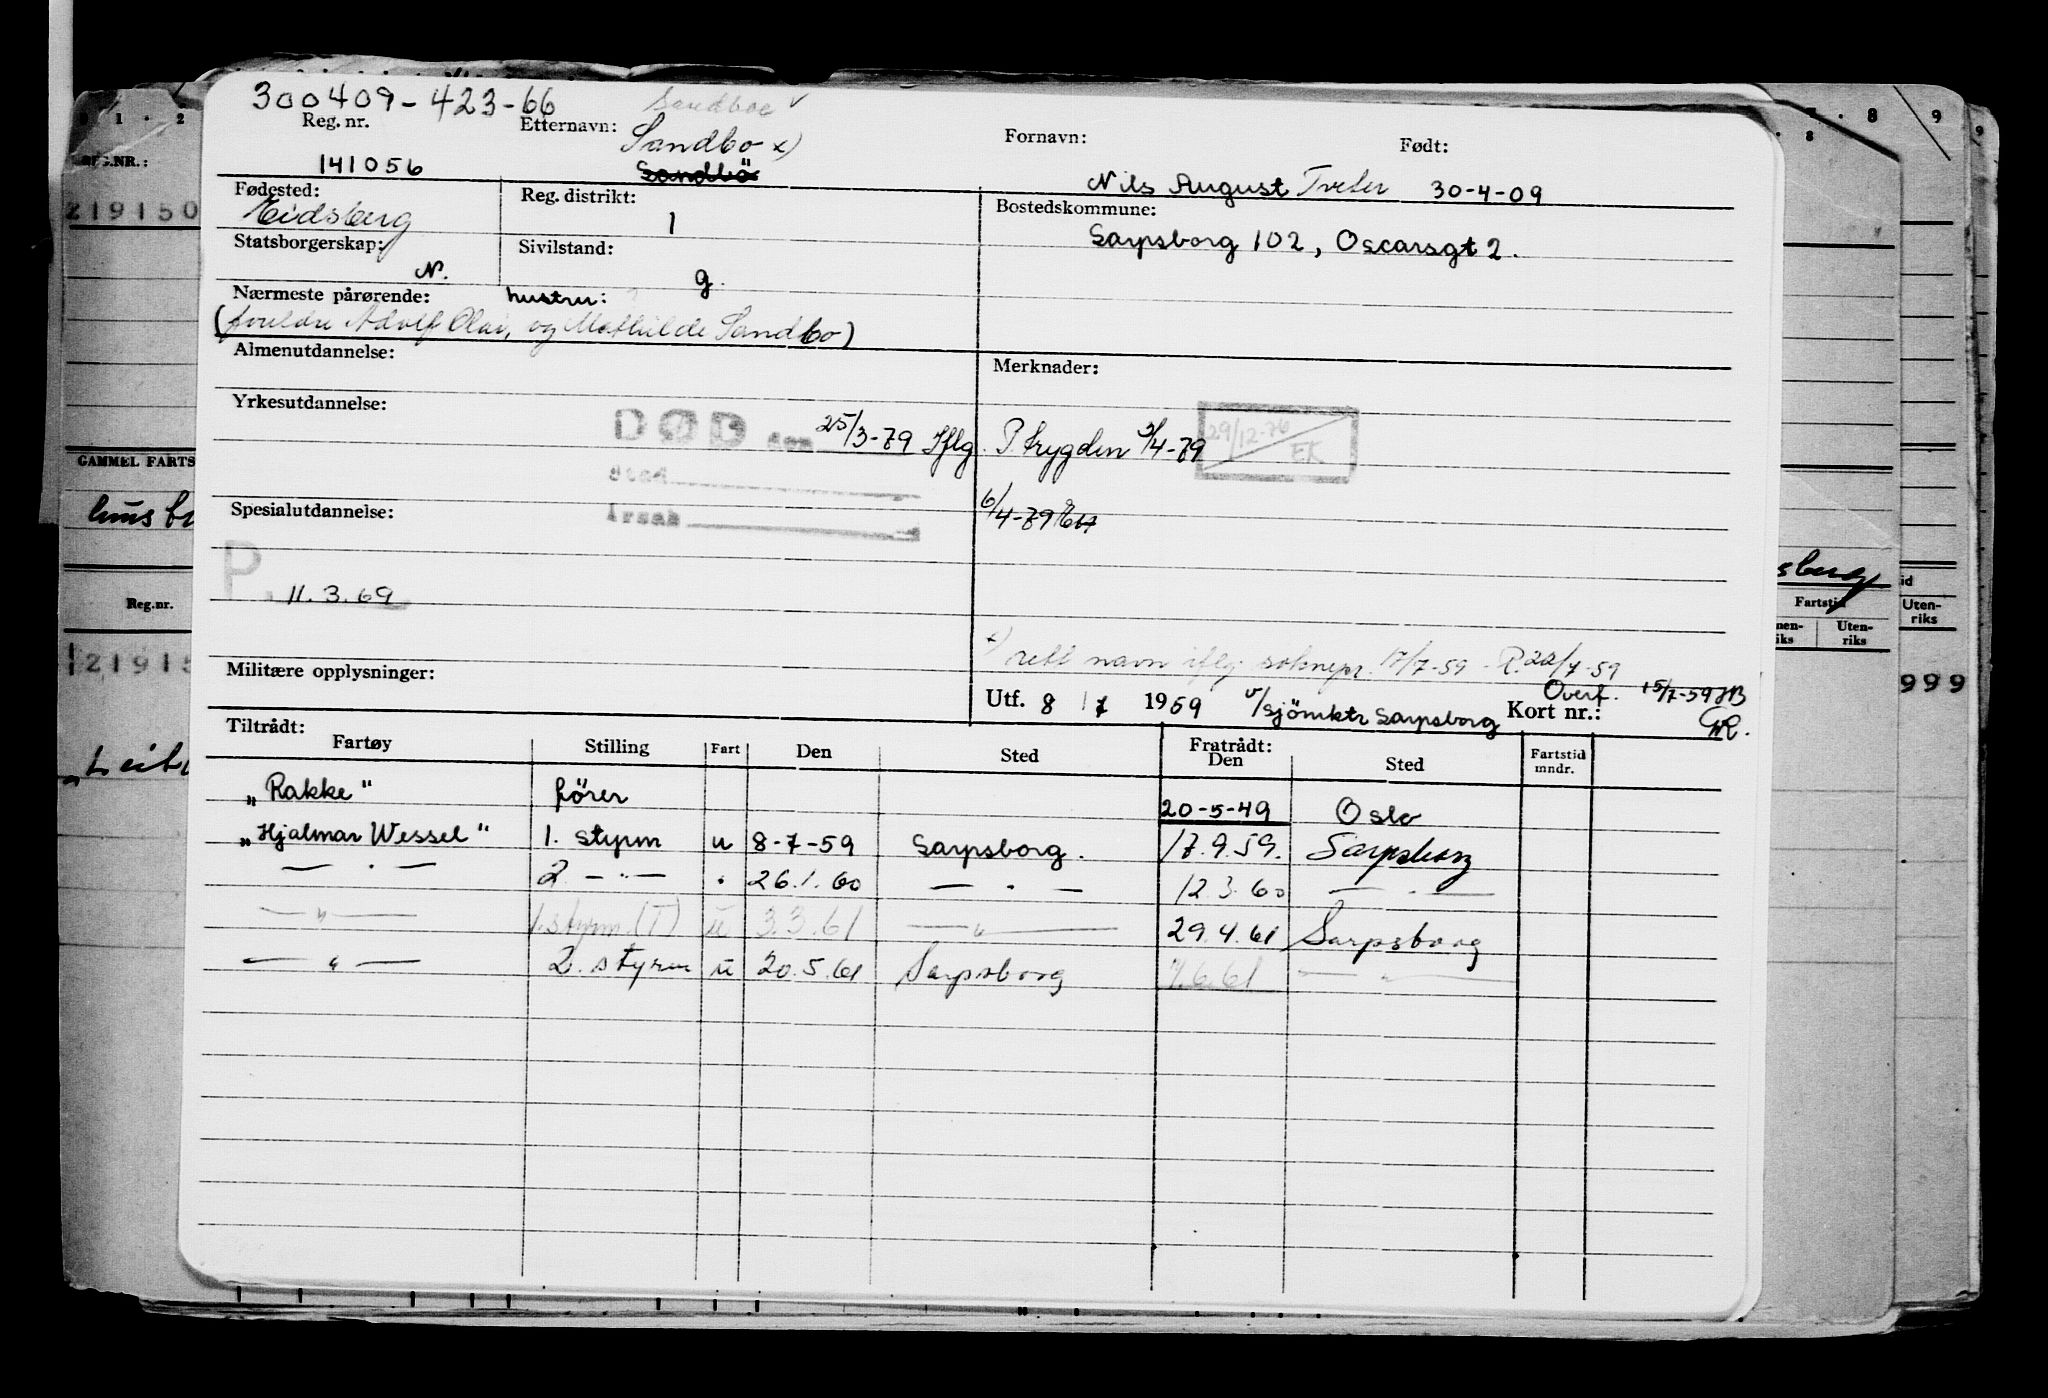 300409-423-66 Sandboe v
Reg. nr. Etternavn: Sandbo x) Fornavn: Født:
141056 Sandbö Nils August Tveter 30-4-09
Fødested: Reg. distrikt: Bostedskommune:
Eidsberg 1 Sarpsborg 102, Oscarsgt 2.
Statsborgerskap: Sivilstand:
N. g.
Nærmeste pårørende: hustru:
(foreldre Adolf Olai, og Mathilde Sandbo)
Almenutdannelse: Merknader:
Yrkesutdannelse:
DØD den 25/3-79 Iflg. P. trygden 3/4-79 29/12-76 EK
Sted
Årsak 6/4-79
Spesialutdannelse:
P. 11.3.69
x) rett navn iflg. 17/7-59 - R. 22/7-59
Militære opplysninger: Overf. 15/7-59 HB
Utf. 8 / 7 1959 v/sjömktr Sarpsborg Kort nr.:
Tiltrådt: Fratrådt:
Fartøy Stilling Fart Den Sted Den Sted Fartstid mndr.
"Rakke" förer 20-5-49 Oslo
"Hjalmar Wessel" 1. styrm u 8-7-59 Sarpsborg. 17.9.59. Sarpsborg
— . — 2. — . — . 26.1.60 — . — 12.3.60 — . —
— " — 1. styrm (T) u 3.3.61 — " — 29.4.61 Sarpsborg
— " — 2. styrm u 20.5.61 Sarpsborg 7.6.61 — " —
REG.NR.:
219150
GAMMEL FARTS
Reg.nr.
12915
sberg
Fartstid
Uten-
riks
Uten-
riks
999